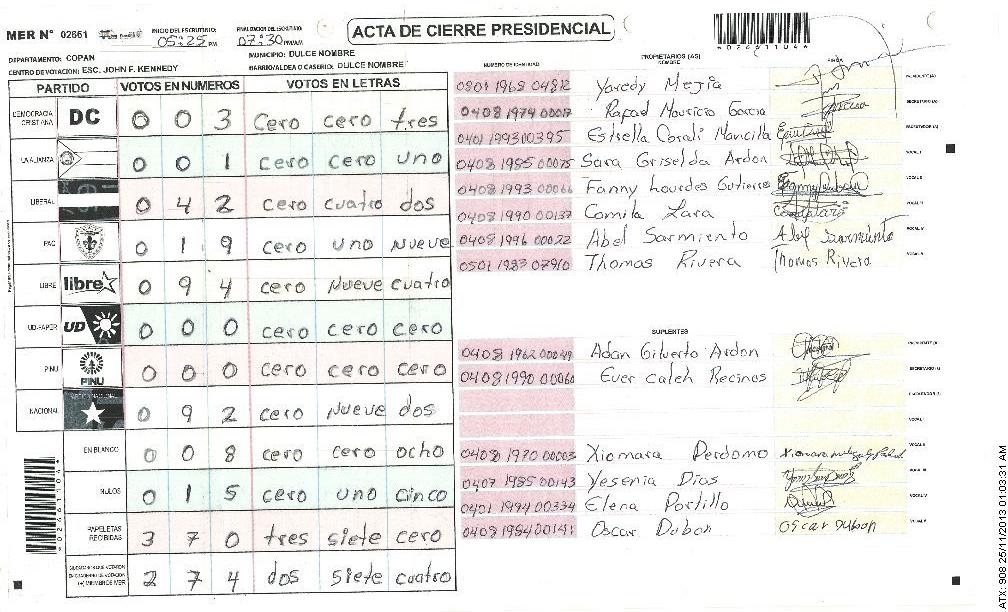 MER N° 02661
INICIO DEL ESCRUTINIO: 05:25 PM
FINALIZACION DEL ESCRUTINIO: 07:30 PM/AM
ACTA DE CIERRE PRESIDENCIAL
*026611044*
DEPARTAMENTO: COPAN
MUNICIPIO: DULCE NOMBRE
CENTRO DE VOTACION: ESC. JOHN F. KENNEDY
BARRIO/ALDEA O CASERIO: DULCE NOMBRE
PARTIDO VOTOS EN NUMEROS VOTOS EN LETRAS
DEMOCRACIA CRISTIANA DC 0 0 3 cero cero tres
LA ALIANZA 0 0 1 cero cero uno
LIBERAL 0 4 2 cero cuatro dos
PAC 0 1 9 cero uno nueve
LIBRE libre 0 9 4 cero nueve cuatro
UD-FAPER UD 0 0 0 cero cero cero
PINU PINU 0 0 0 cero cero cero
NACIONAL 0 9 2 cero nueve dos
EN BLANCO 0 0 8 cero cero ocho
NULOS 0 1 5 cero uno cinco
PAPELETAS RECIBIDAS 3 7 0 tres siete cero
2 7 4 dos siete cuatro
*026611044*
NUMERO DE IDENTIDAD PROPIETARIOS (AS) NOMBRE FIRMA
0801 1968 04812 Yaredy Mejia PRESIDENTE (A)
0408 1979 00017 Rafael Mauricio Garcia SECRETARIO (A)
0401 1993 00395 Estrella Corali Mancilla ESCRUTADOR (A)
0408 1985 00075 Sara Griselda Ardon VOCAL I
0408 1993 00066 Fanny Lourdes Gutierrez VOCAL II
0408 1990 00137 Camila Lara VOCAL III
0408 1996 00022 Abel Sarmiento Abel Sarmiento VOCAL IV
0501 1983 07910 Thomas Rivera Thomas Rivera VOCAL V
SUPLENTES
0408 1962 00049 Adan Gilverto Ardon PRESIDENTE (A)
0408 1990 00060 Ever Caleh Recinos SECRETARIO (A)
ESCRUTADOR (A)
VOCAL I
0408 1970 00003 Xiomara Perdomo VOCAL II
0407 1985 00143 Yesenia Dias VOCAL III
0401 1994 00334 Elena Portillo VOCAL IV
0408 1984 00141 Oscar Dubon Oscar Dubon VOCAL V
ATX: 908 25/11/2013 01:03:31 AM